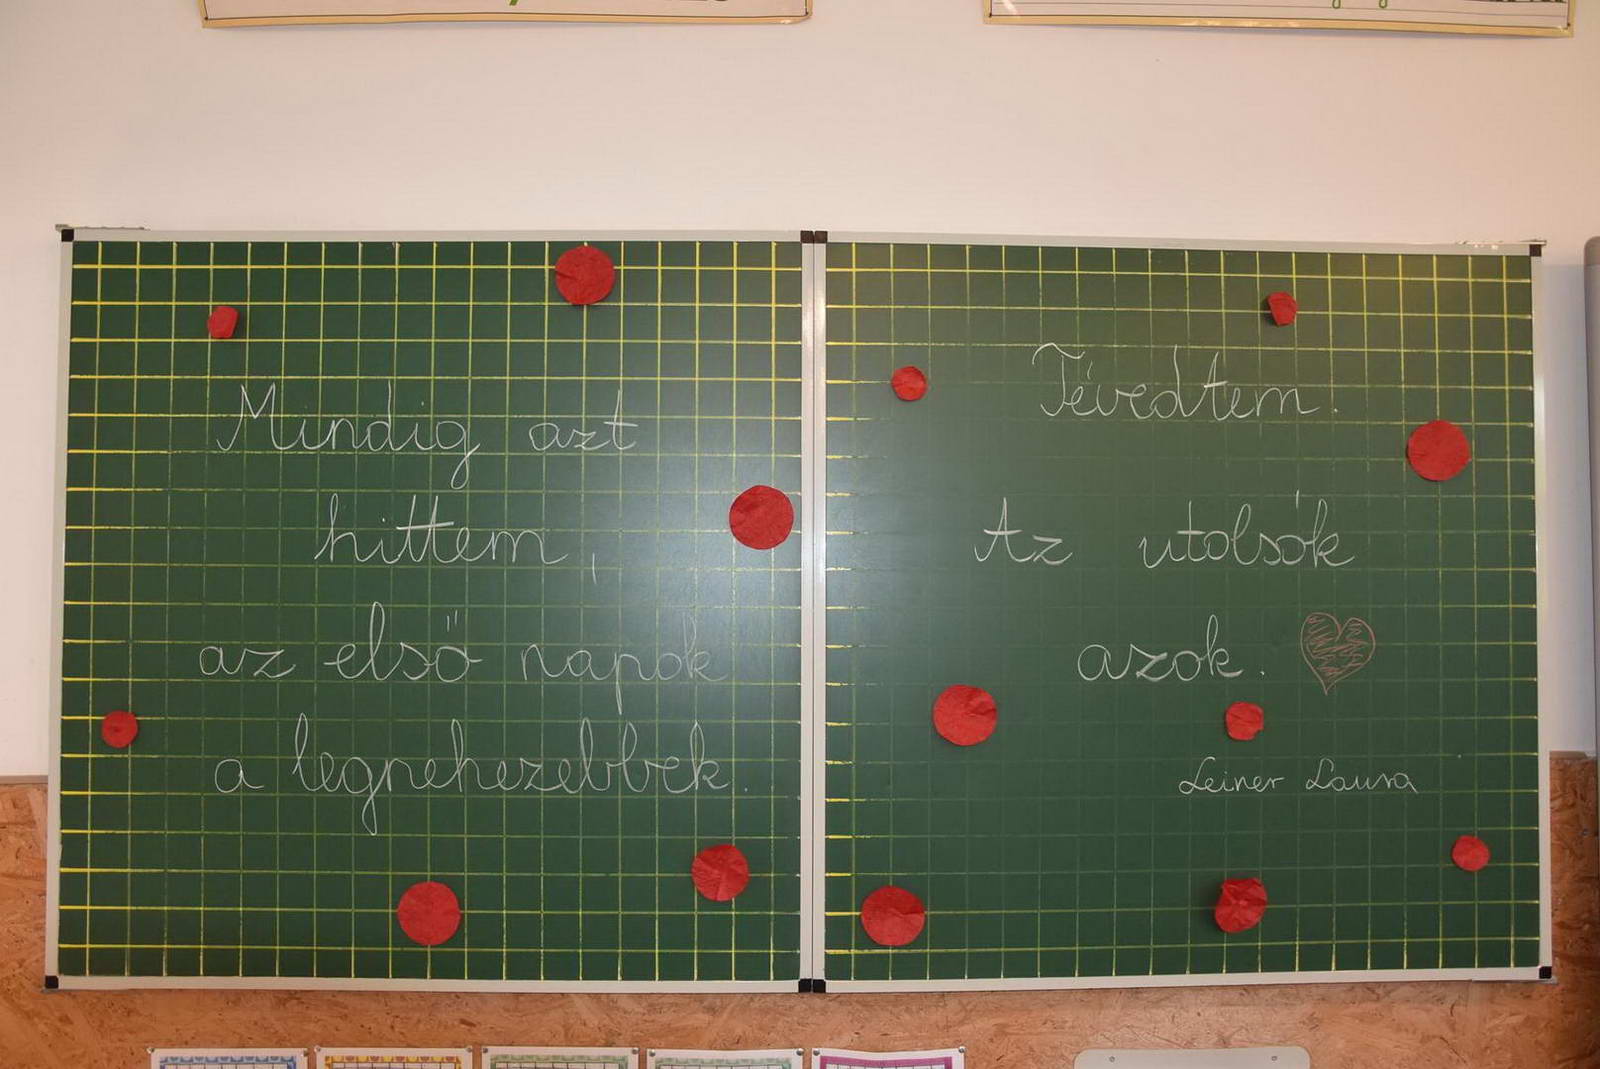 Mindig azt
hittem,
az első napok
a legnehezebbek.
Tévedtem.
Az utolsók
azok.
Leiner Laura